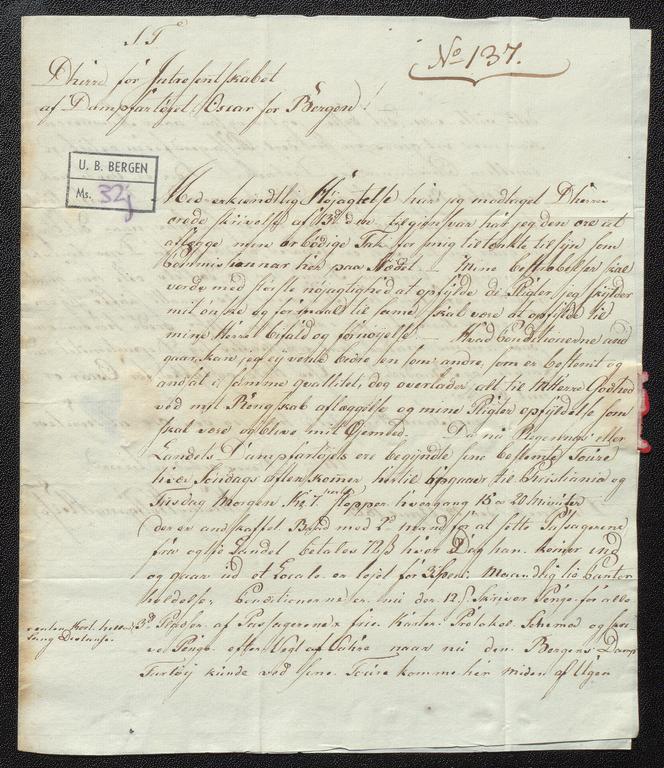 S. T.
No 137.
Dherre for Intresentskabet
af Dampfartøyet Oscar for Bergen!
U. B. BERGEN
Ms. 32j
Med erkiendtlig Høyagtelse har jeg modtaget Dherres
ærede skrivelse af 13de d: m: hvor har jeg den ære at
aflægge min ærbødige Tak for mig tiltænkte tilsyn som
Commissionnair her paa Stædet. Mine bestræbelser skal
være med største nøjagtighed at opfylde de Pligter jeg skylder
mit ønske og formaal til samme, skal være at opfylde til
mine Herrers bifald og fornøyelse. Hvad Conditionerne and
gaar, kan jeg ej vente bedre en som andre, som er bestemt og
andsat i samme qvallitet, dog overlader alt til mHerres Godhed
ved nyt Regnskab aflæggelse og mine Pligter opfyldelse som
skal være og blive mit Øjemed. Da nu Regjerings eller
Landets Dampfartøjer ere begyndte sine bestemte Toure
hver Søndags aften komer hertil opgaaer til Christiania og
Tirsdag Morgen Kl. 7 stopper hvergang 15 a 20 Minuter
der er andskaffet Baad med 2 mand for at sætte Passagerene
fra og til Landet betales 72 ß hver Dag han komer ind
og gaar ud et Locale er lejet for 3 Speci: Maanedtlig til Contor
holdelse, Conditionerne er nu der 12 ß Skriver Penge for alle
Pladser af Passagerene frie Karter Protokol Schema og
Penge efter Vegt af Sølvet naar nu den Bergens Damp
Fartøy kunde ved sine Toure komme her miden af Ugen